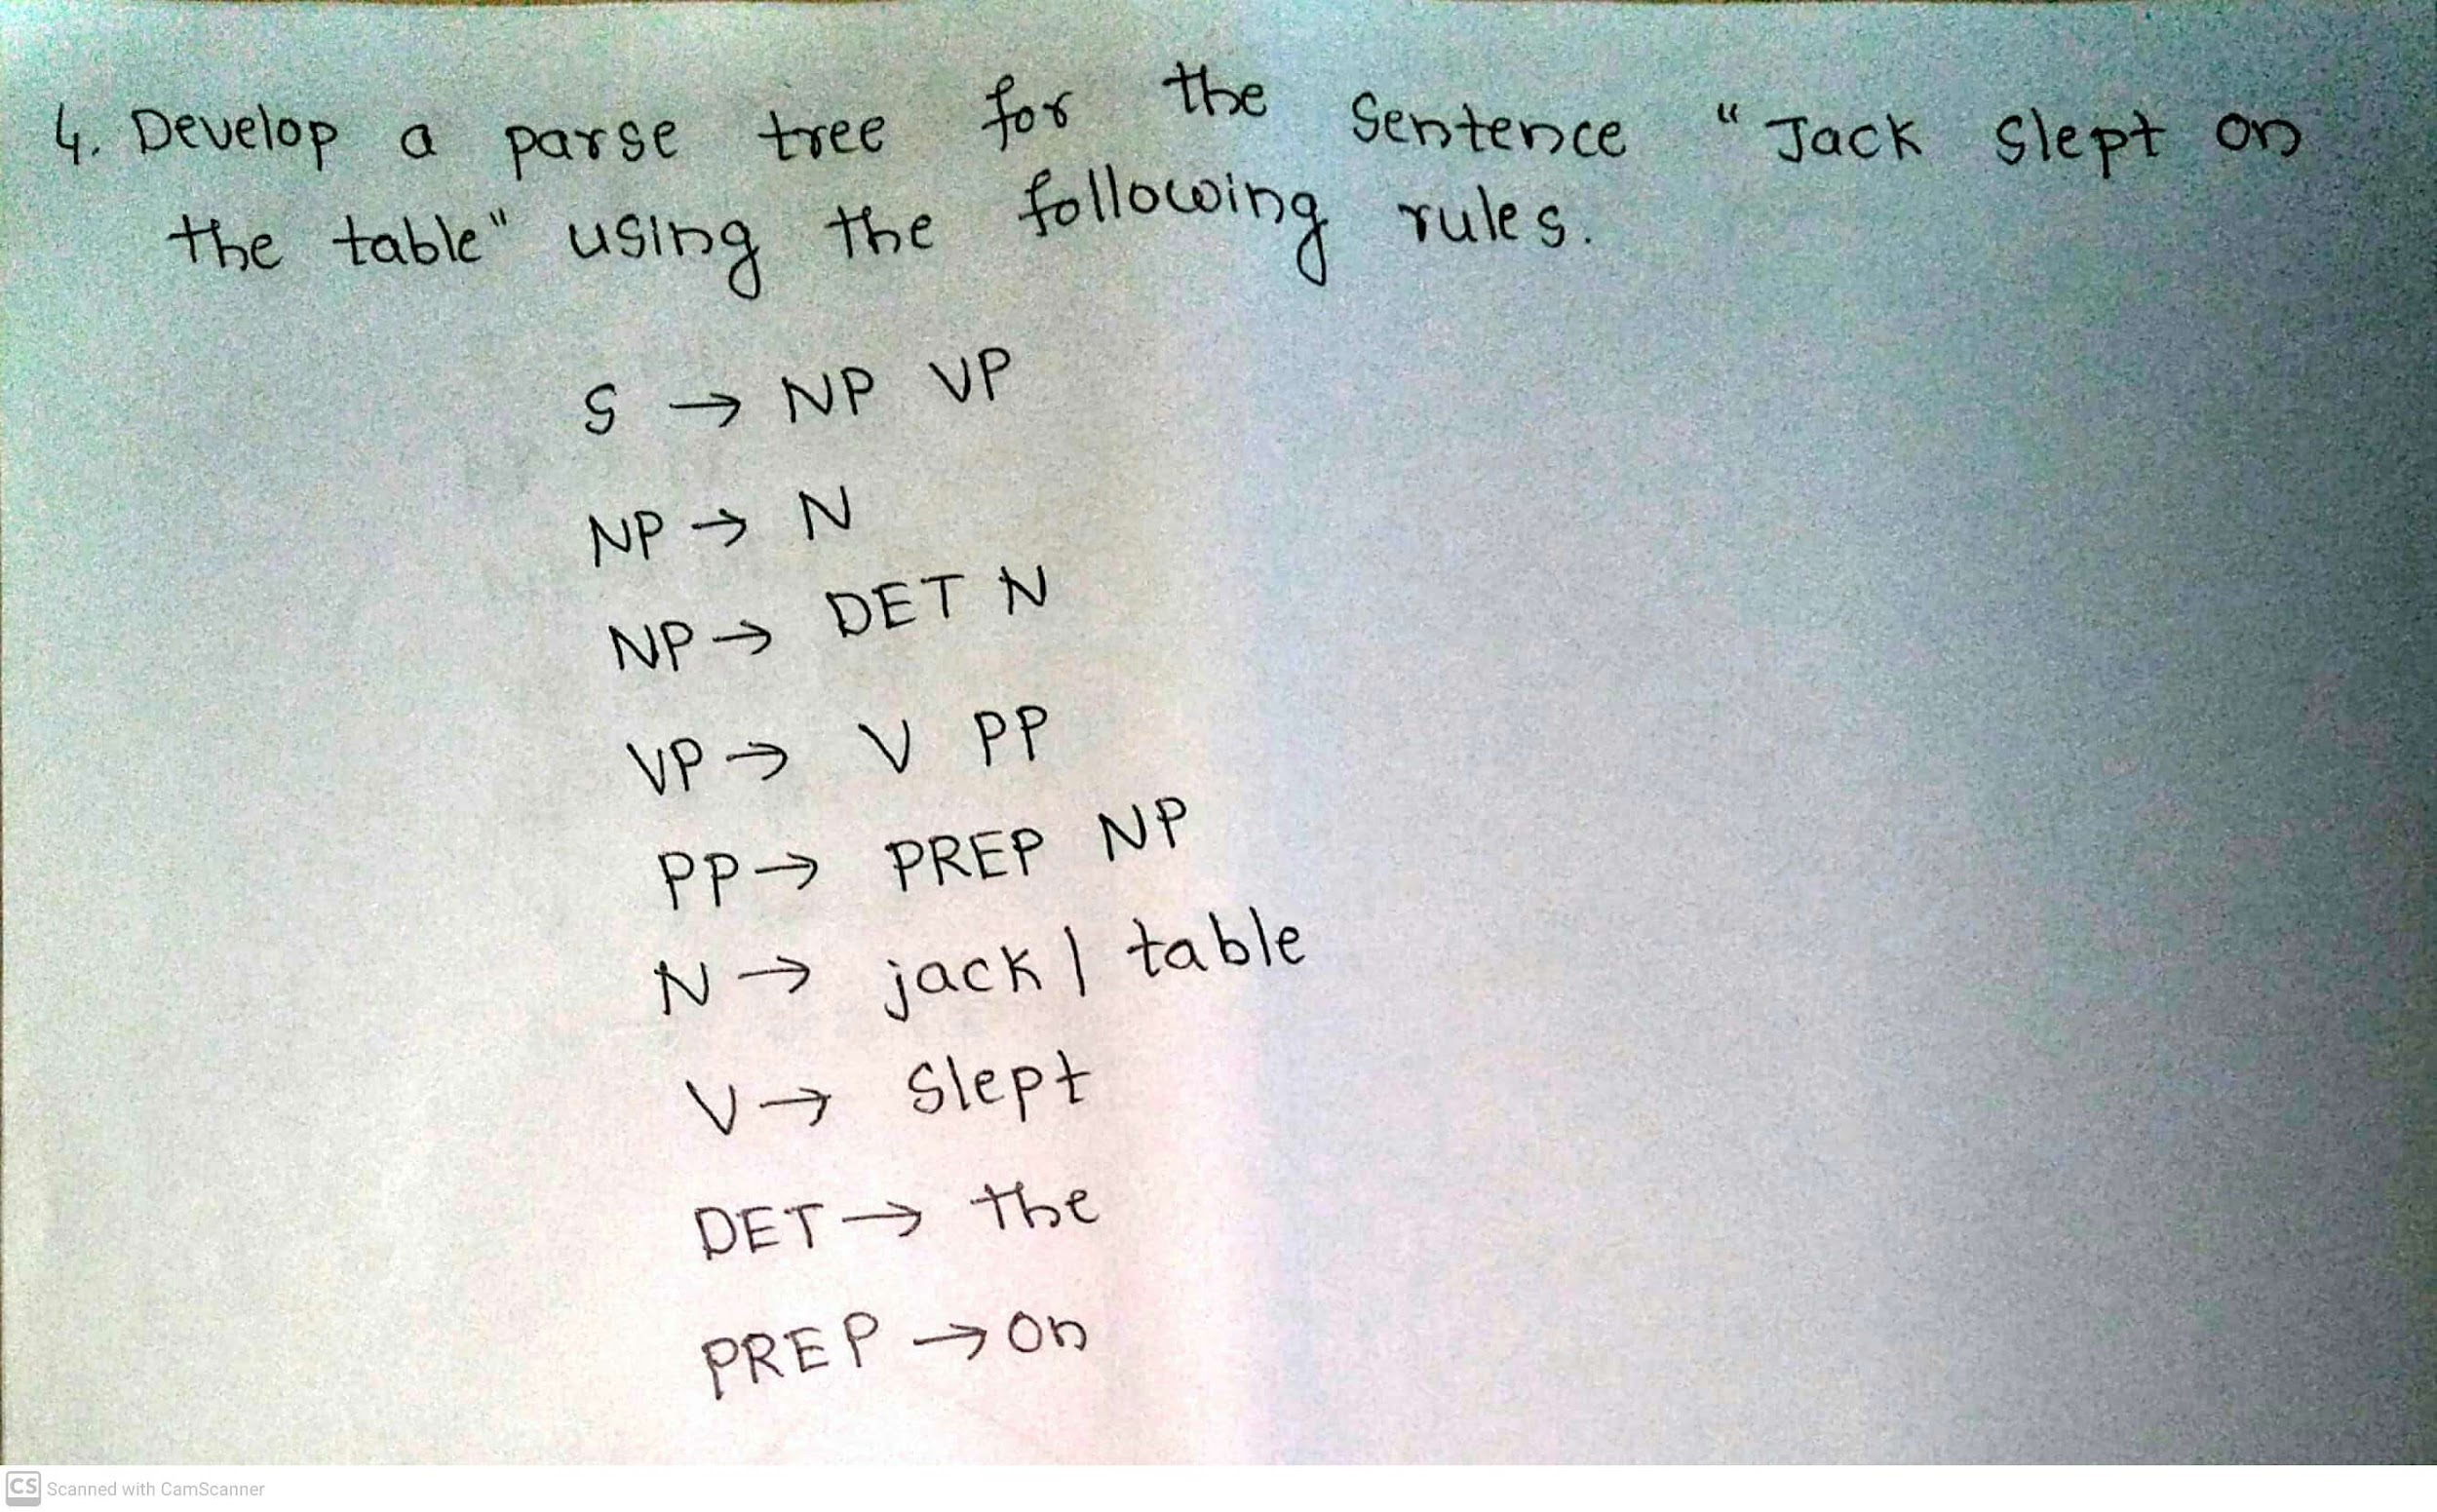 4. Develop a parse tree for the Sentence "Jack Slept on
the table" using the following rules.
S → NP VP
NP → N
NP → DET N
VP → V PP
PP → PREP NP
N → jack | table
V → Slept
DET → the
PREP → on
CS Scanned with CamScanner